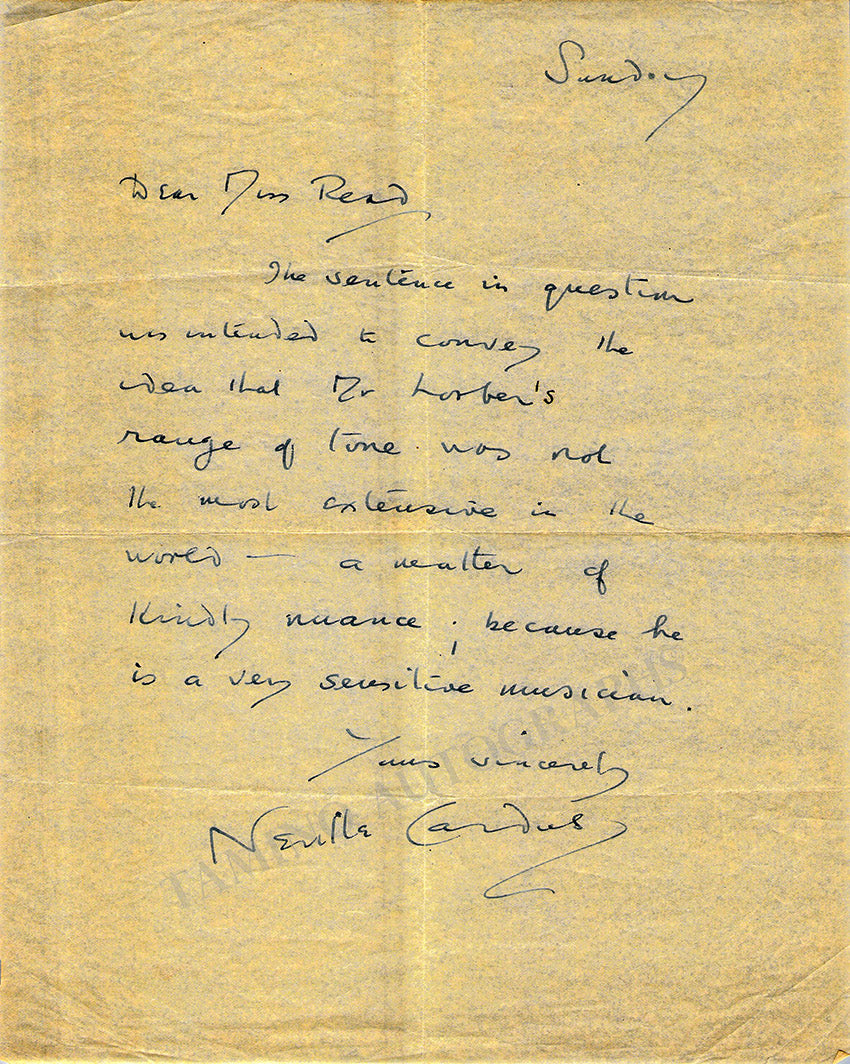 Sunday
Dear Miss Read
The sentence in question
was intended to convey the
idea that Mr Lorber's
range of tone was not
the most extensive in the
world — a matter of
Kindly nuance; because he
is a very sensitive musician.
Yours sincerely
Neville Cardus
TAMINO AUTOGRAPHS